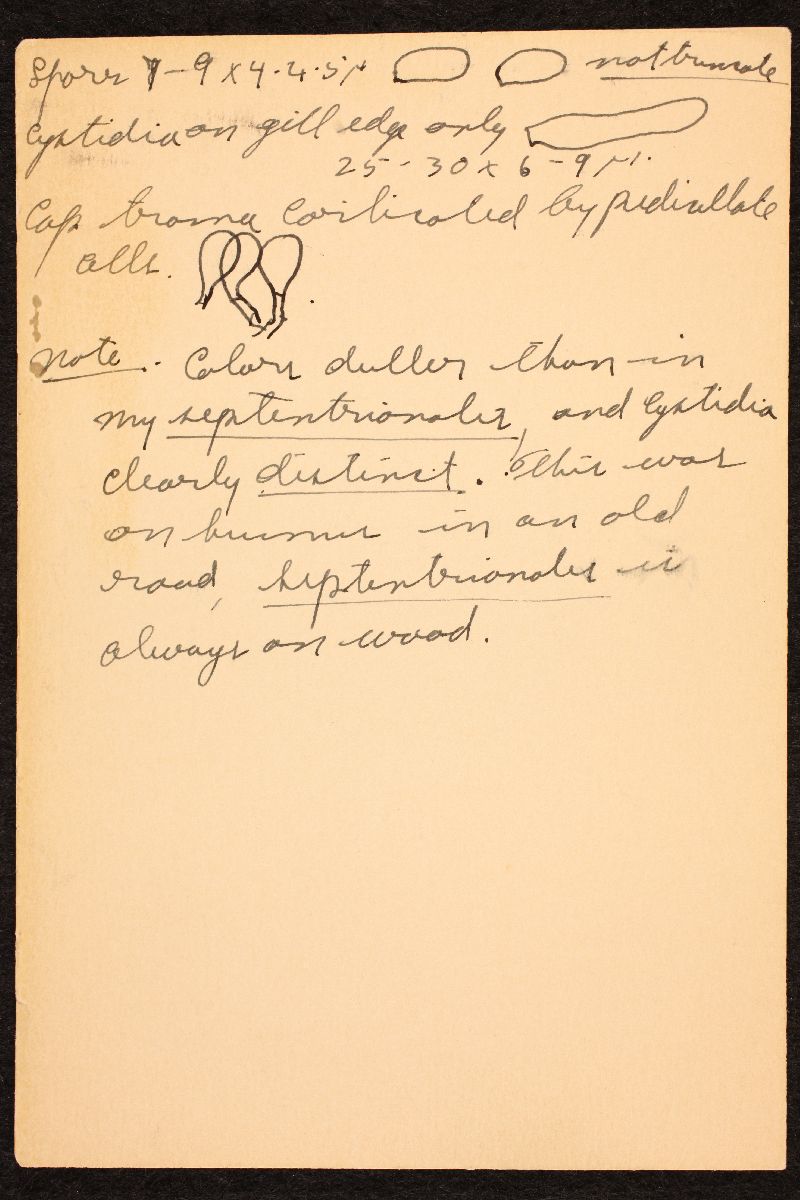 Spores 7-9 x 4-4.5 µ not truncate
Cystidia on gill edge only
25-30 x 6-9 µ.
Cap trama corticated by pedicellate
cells.
Note. Colors duller than in
my septentrionalis, and cystidia
clearly distinct. This was
on humus in an old
road, septentrionalis is
always on wood.